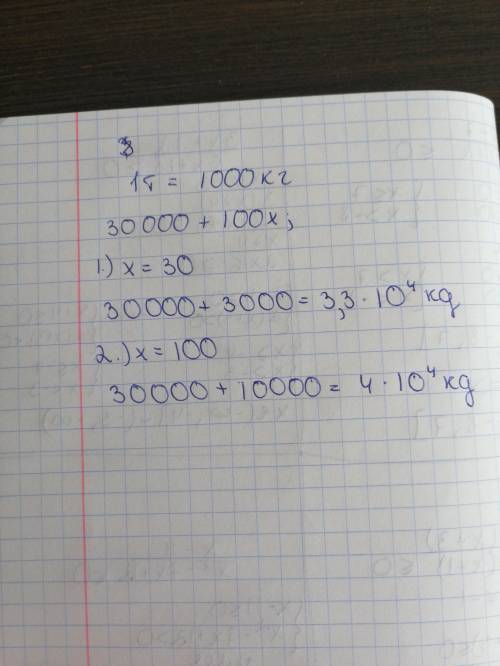 1т = 1000 кг
30000 + 100x;
1.) x = 30
30000 + 3000 = 3,3 · 10⁴ kg
2.) x = 100
30000 + 10000 = 4 · 10⁴ kg